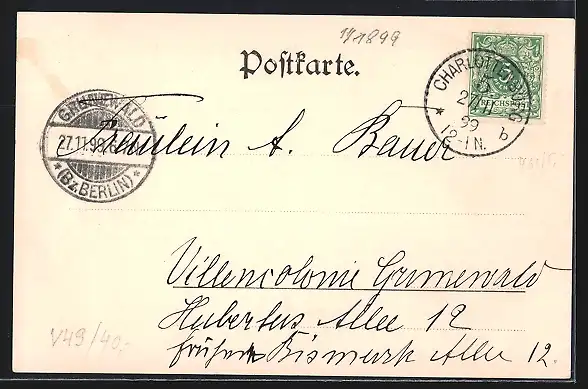 11/1899
Postkarte.
REICHSPOST
CHARLOTTENBURG
27.11.
99
12-1N.
b
GRUNEWALD
27.11.99
*(Bz.BERLIN)*
Fräulein A. Bauer
Villencolonie Grunewald
Hubertus Allee 12
früher Bismark Allee 12.
V49/40,-